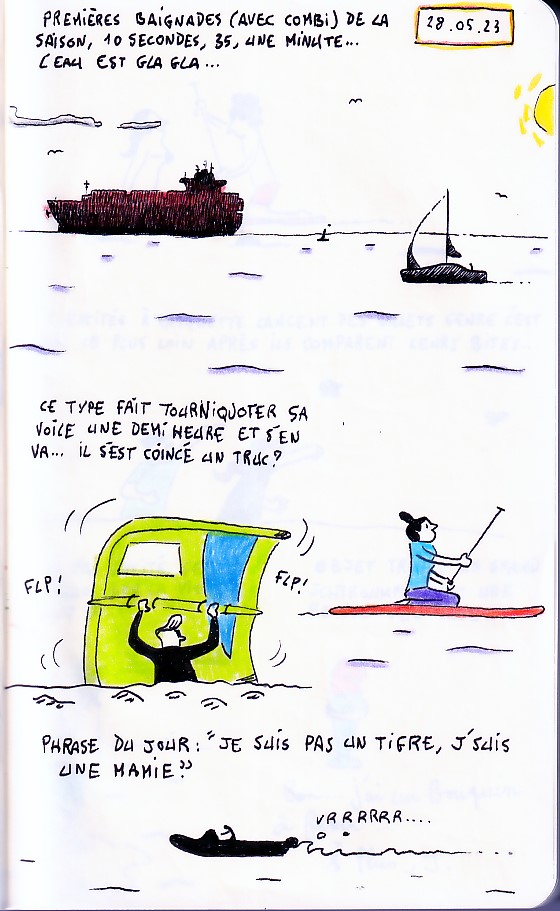 PREMIÈRES BAIGNADES (AVEC COMBI) DE LA
28.05.23
SAISON, 10 SECONDES, 35, UNE MINUTE...
L'EAU EST GLA GLA...
CE TYPE FAIT TOURNIQUOTER SA
VOILE UNE DEMI HEURE ET S'EN
VA... IL S'EST COINCÉ UN TRUC?
FLP!
FLP!
PHRASE DU JOUR: "JE SUIS PAS UN TIGRE, J'SUIS
UNE MAMIE"
VRRRRRR....